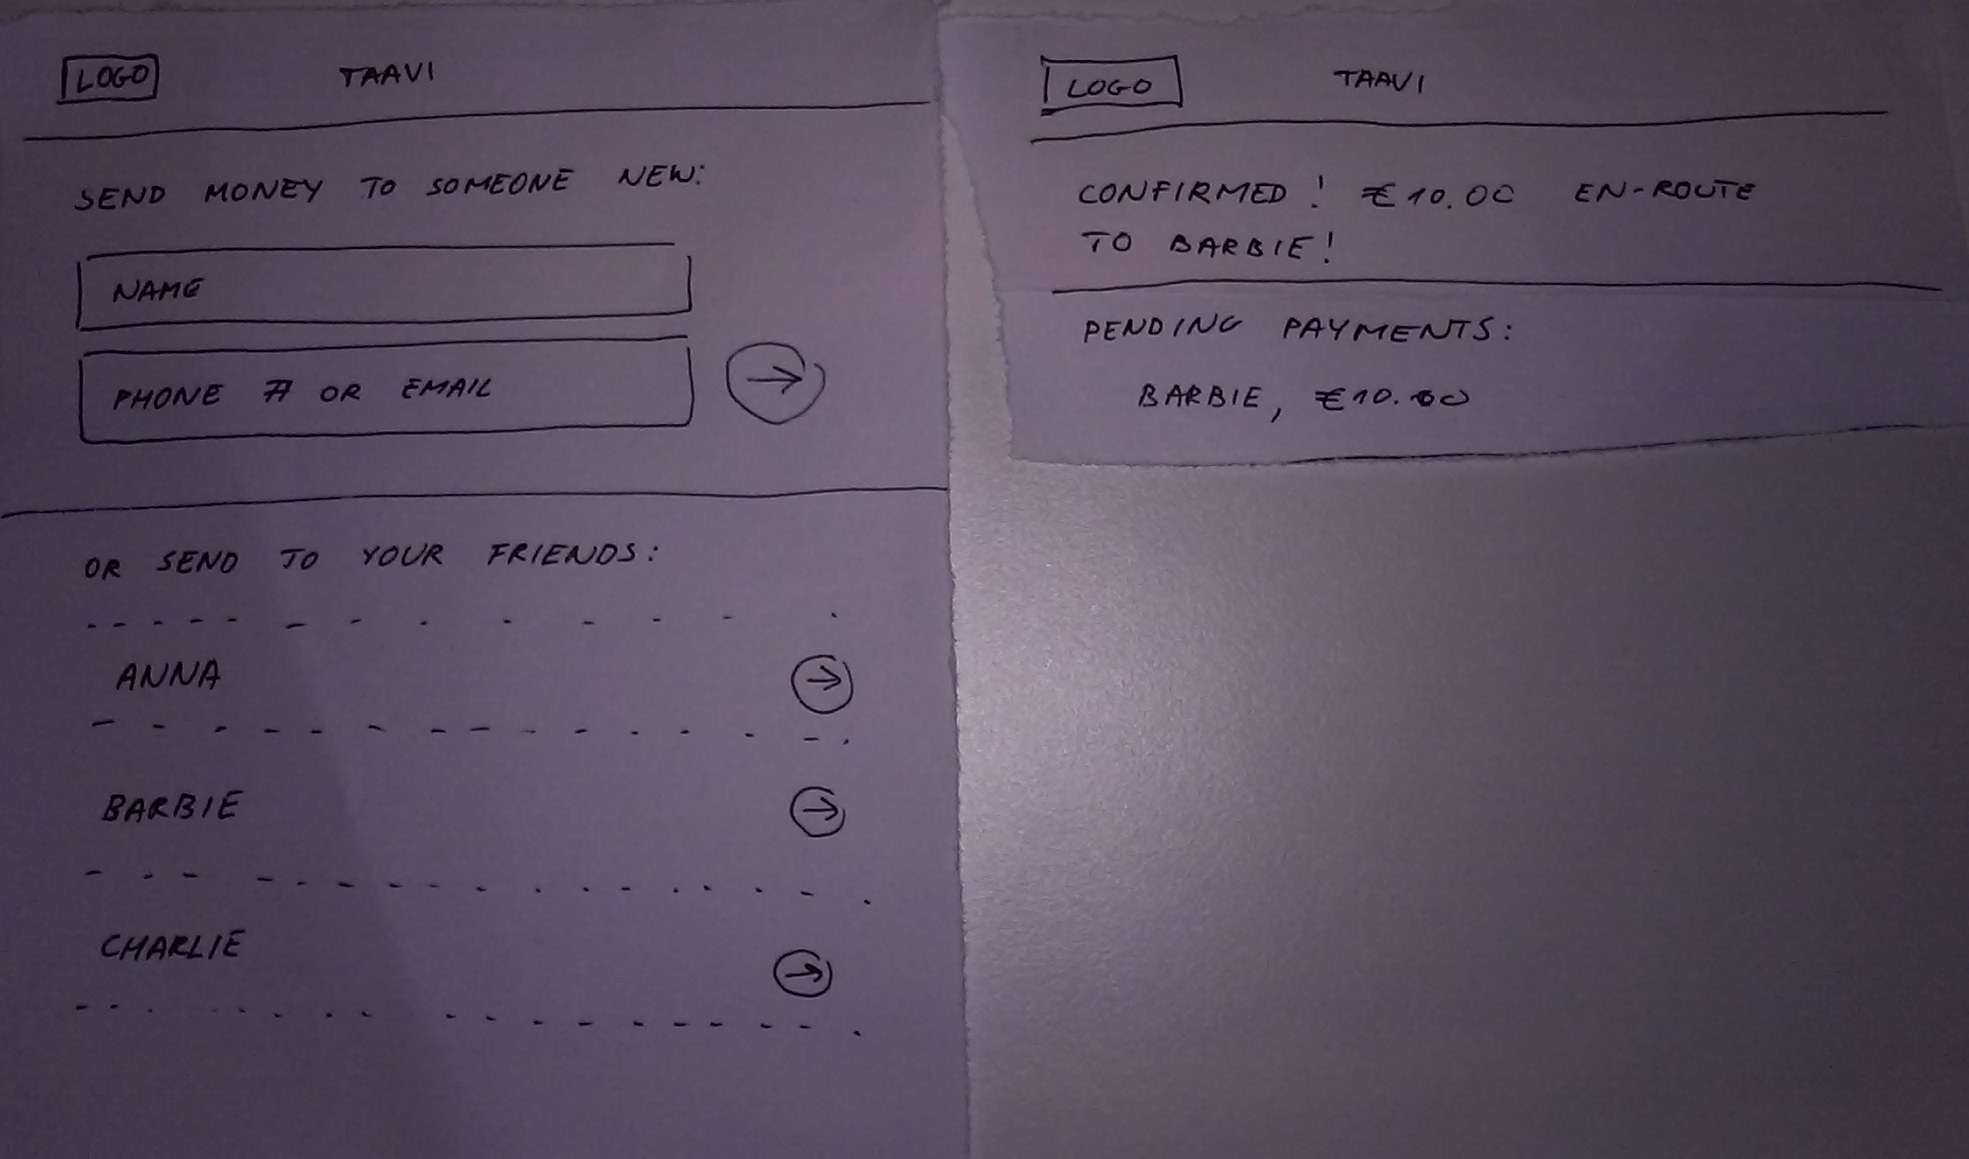 LOGO TAAVI
SEND MONEY TO SOMEONE NEW:
NAME
PHONE # OR EMAIL
→
OR SEND TO YOUR FRIENDS:
ANNA →
BARBIE →
CHARLIE →
LOGO TAAVI
CONFIRMED! €10.00 EN-ROUTE
TO BARBIE!
PENDING PAYMENTS:
BARBIE, €10.00